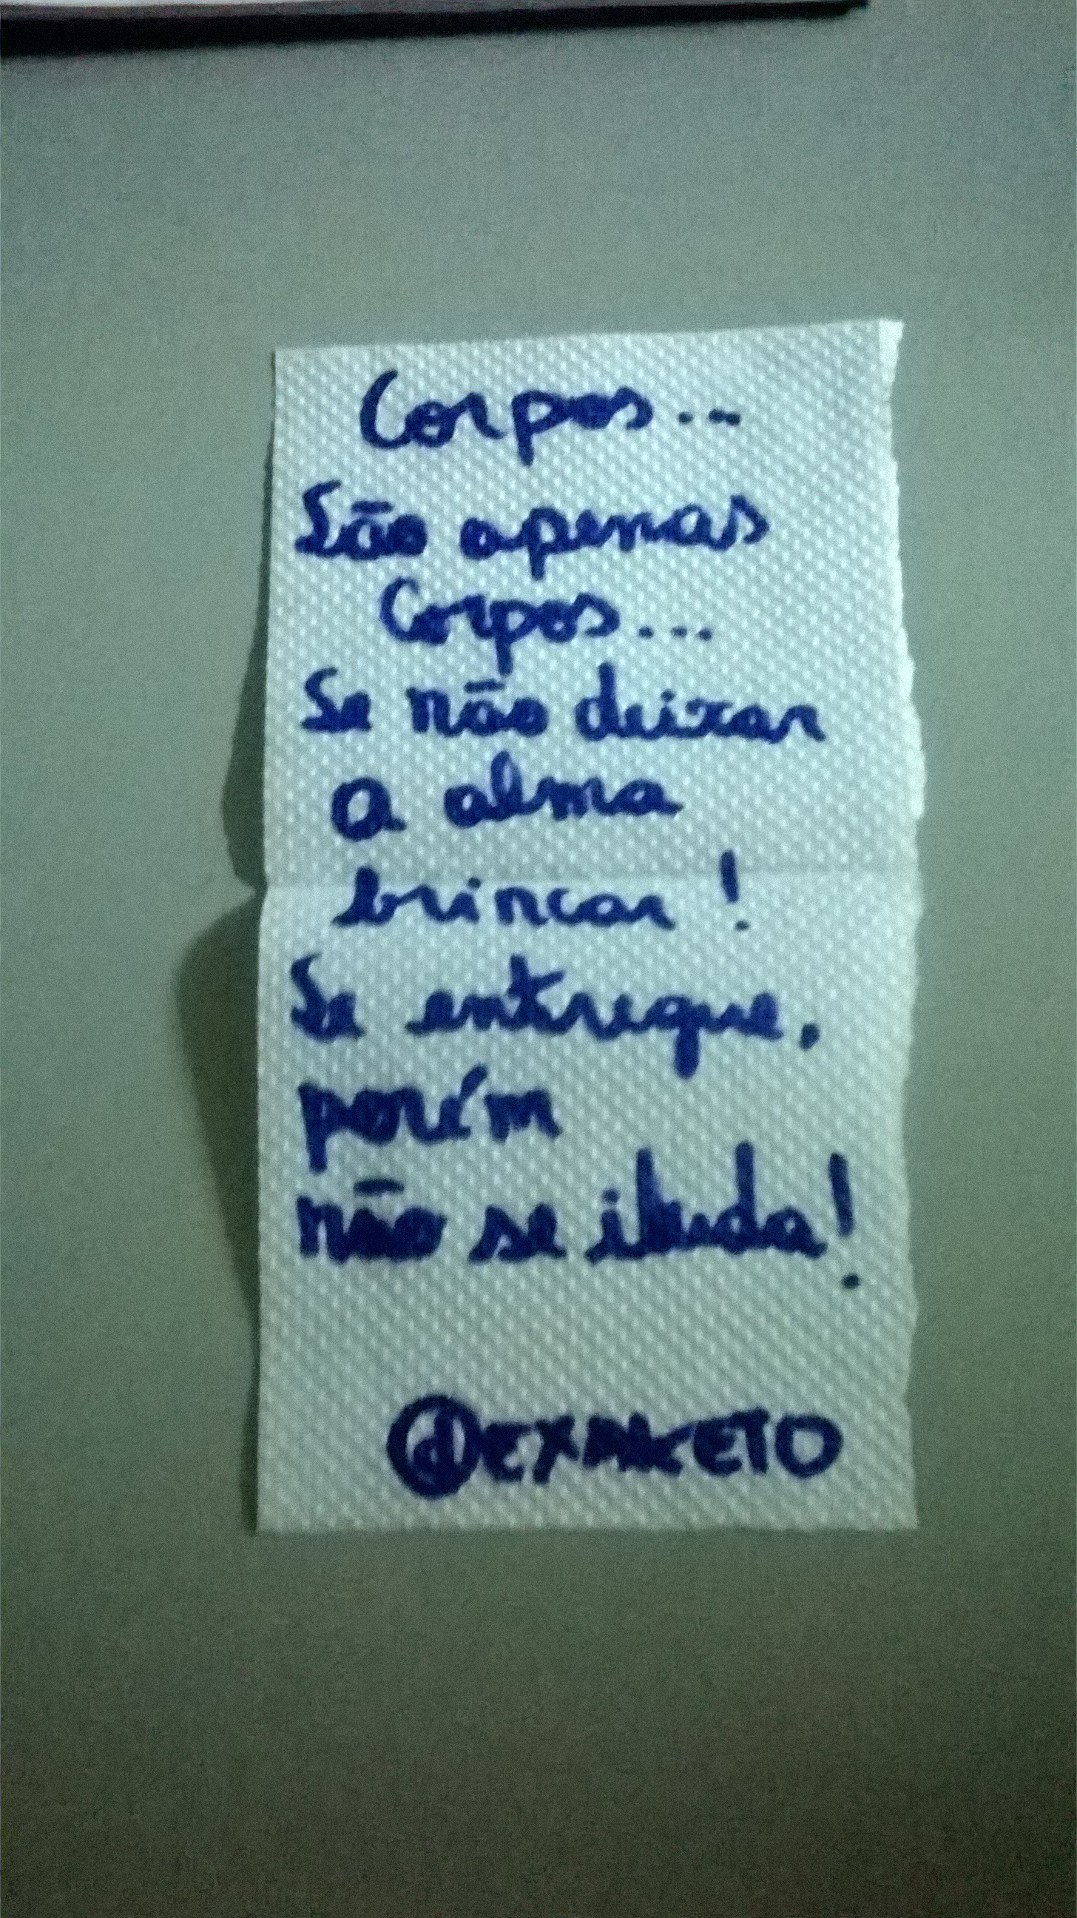 Corpos...
São apenas
Corpos...
Se não deixar
a alma
brincar!
Se entregue,
porém
não se iluda!